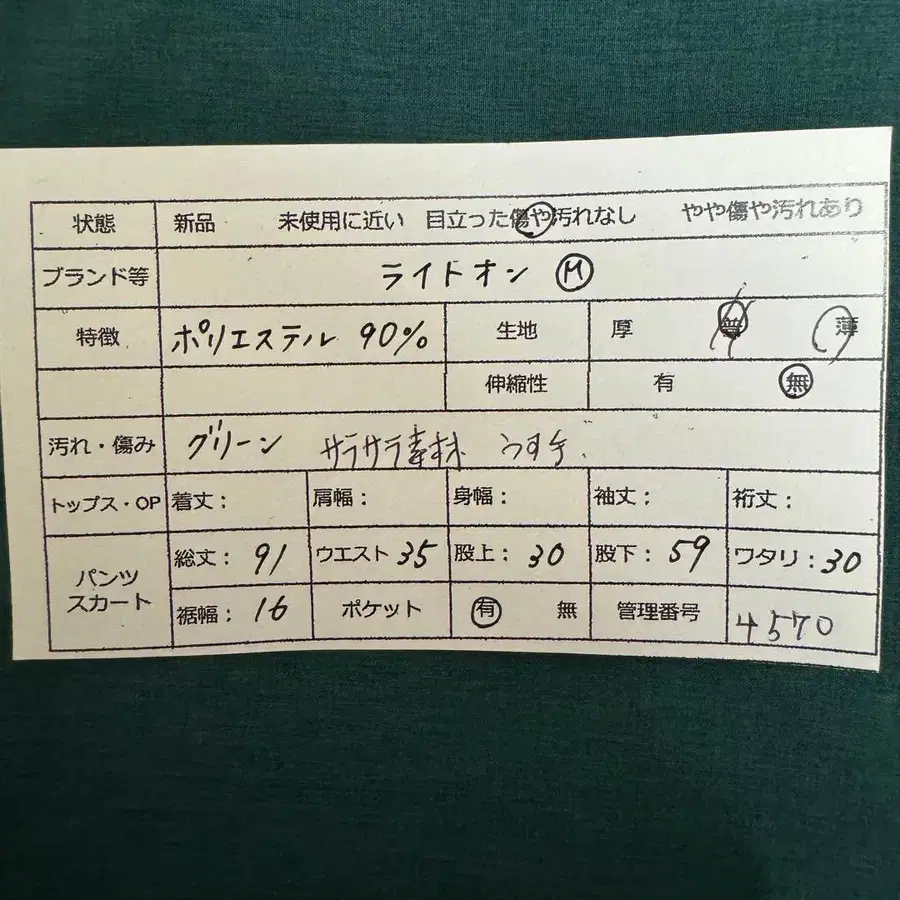 状態 新品 未使用に近い 目立った傷や汚れなし やや傷や汚れあり
ブランド等 ライトオン M
特徴 ポリエステル 90% 生地 厚 普 薄
伸縮性 有 無
汚れ・傷み グリーン サラサラ素材 うす手.
トップス・OP 着丈： 肩幅： 身幅： 袖丈： 裄丈：
パンツ スカート 総丈：91 ウエスト 35 股上：30 股下：59 ワタリ：30
裾幅：16 ポケット 有 無 管理番号 4570